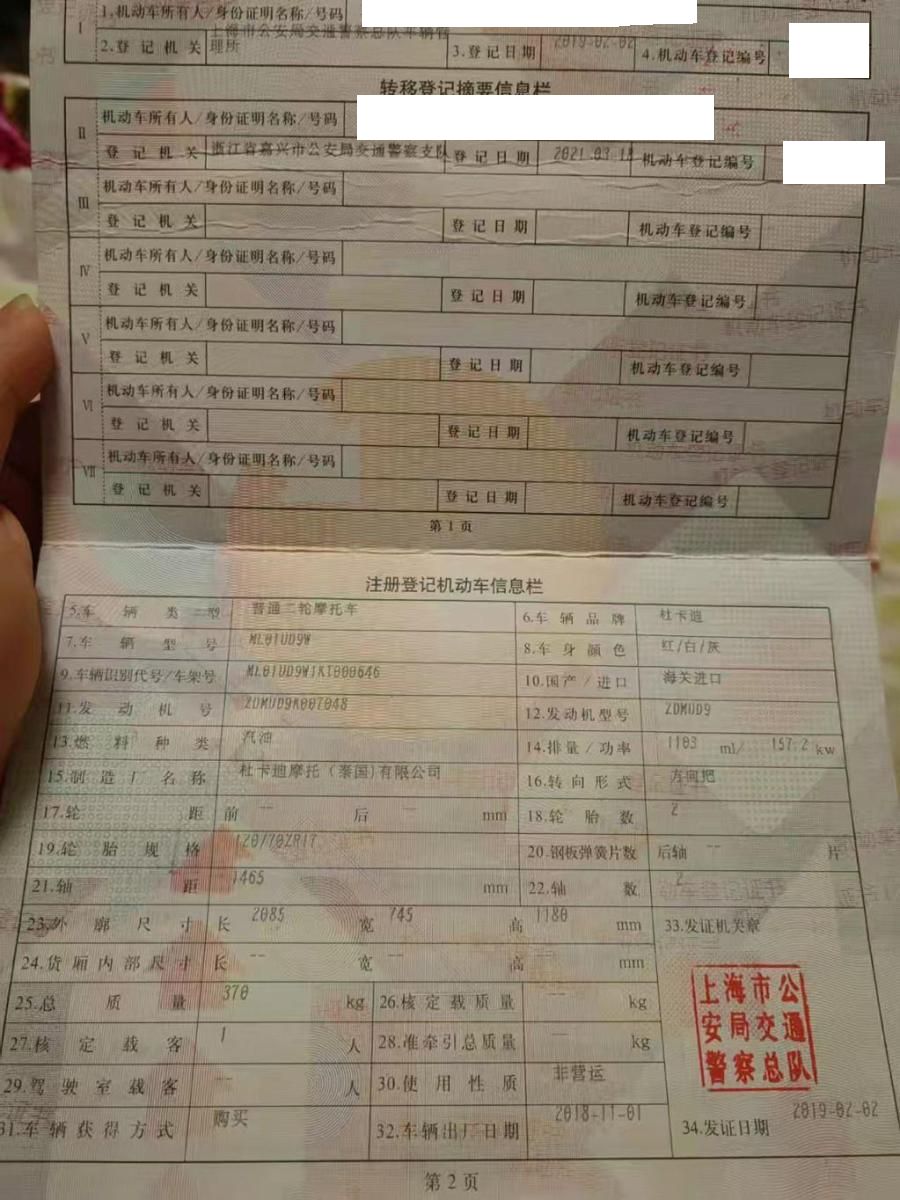 I 1.机动车所有人/身份证明名称/号码
2.登记机关 上海市公安局交通警察总队车辆管理所 3.登记日期 2019-02-02 4.机动车登记编号
转移登记摘要信息栏
II 机动车所有人/身份证明名称/号码
登记机关 浙江省嘉兴市公安局交通警察支队 登记日期 2021-03-18 机动车登记编号
III 机动车所有人/身份证明名称/号码
登记机关 登记日期 机动车登记编号
IV 机动车所有人/身份证明名称/号码
登记机关 登记日期 机动车登记编号
V 机动车所有人/身份证明名称/号码
登记机关 登记日期 机动车登记编号
VI 机动车所有人/身份证明名称/号码
登记机关 登记日期 机动车登记编号
VII 机动车所有人/身份证明名称/号码
登记机关 登记日期 机动车登记编号
第1页
注册登记机动车信息栏
5.车辆类型 普通二轮摩托车 6.车辆品牌 杜卡迪
7.车辆型号 ML01UD9W 8.车身颜色 红/白/灰
9.车辆识别代号/车架号 ML01UD9W1KT000646 10.国产/进口 海关进口
11.发动机号 ZDMUD9K007048 12.发动机型号 ZDMUD9
13.燃料种类 汽油 14.排量/功率 1103 ml/ 157.2 kw
15.制造厂名称 杜卡迪摩托(泰国)有限公司 16.转向形式 方向把
17.轮距 前 -- 后 -- mm 18.轮胎数 2
19.轮胎规格 120/70ZR17 20.钢板弹簧片数 后轴 -- 片
21.轴距 1465 mm 22.轴数 2
23.外廓尺寸 长 2085 宽 745 高 1180 mm 33.发证机关章
24.货厢内部尺寸 长 -- 宽 -- 高 -- mm
25.总质量 370 kg 26.核定载质量 -- kg
27.核定载客 1 人 28.准牵引总质量 -- kg
上海市公
安局交通
警察总队
29.驾驶室载客 -- 人 30.使用性质 非营运
31.车辆获得方式 购买 32.车辆出厂日期 2018-11-01 34.发证日期 2019-02-02
第2页